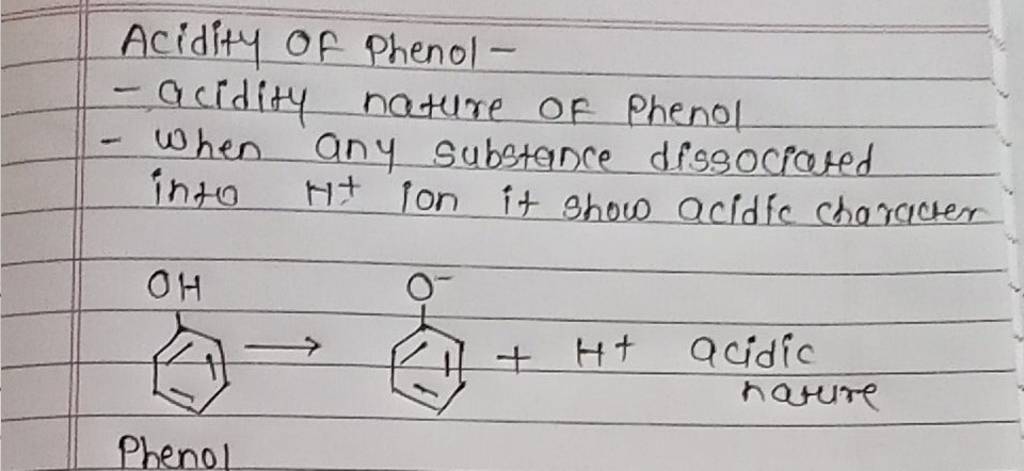 Acidity OF Phenol -
- acidity nature OF Phenol
- when any substance dissociated
into H+ ion it show acidic character
OH
O-
+ H+ acidic
nature
Phenol